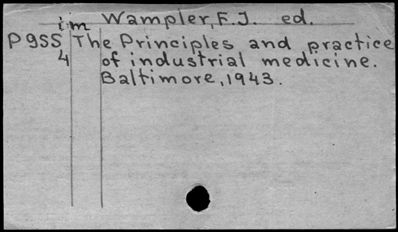 im Wampler, F.J. ed.
P955 The Principles and practice
4 of industrial medicine.
Baltimore, 1943.